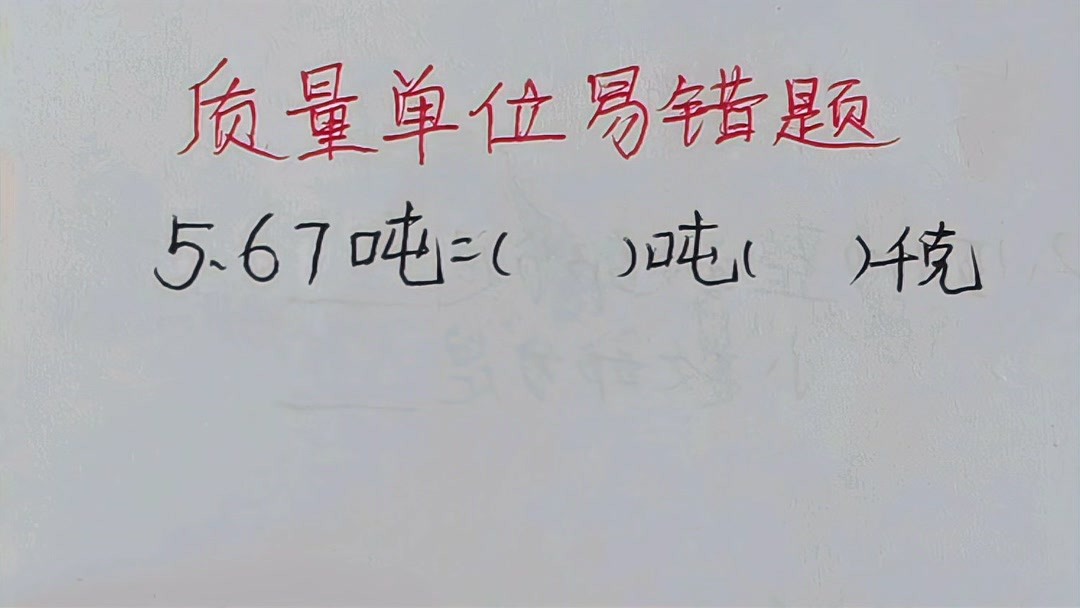 质量单位易错题
5.67吨=( )吨( )千克